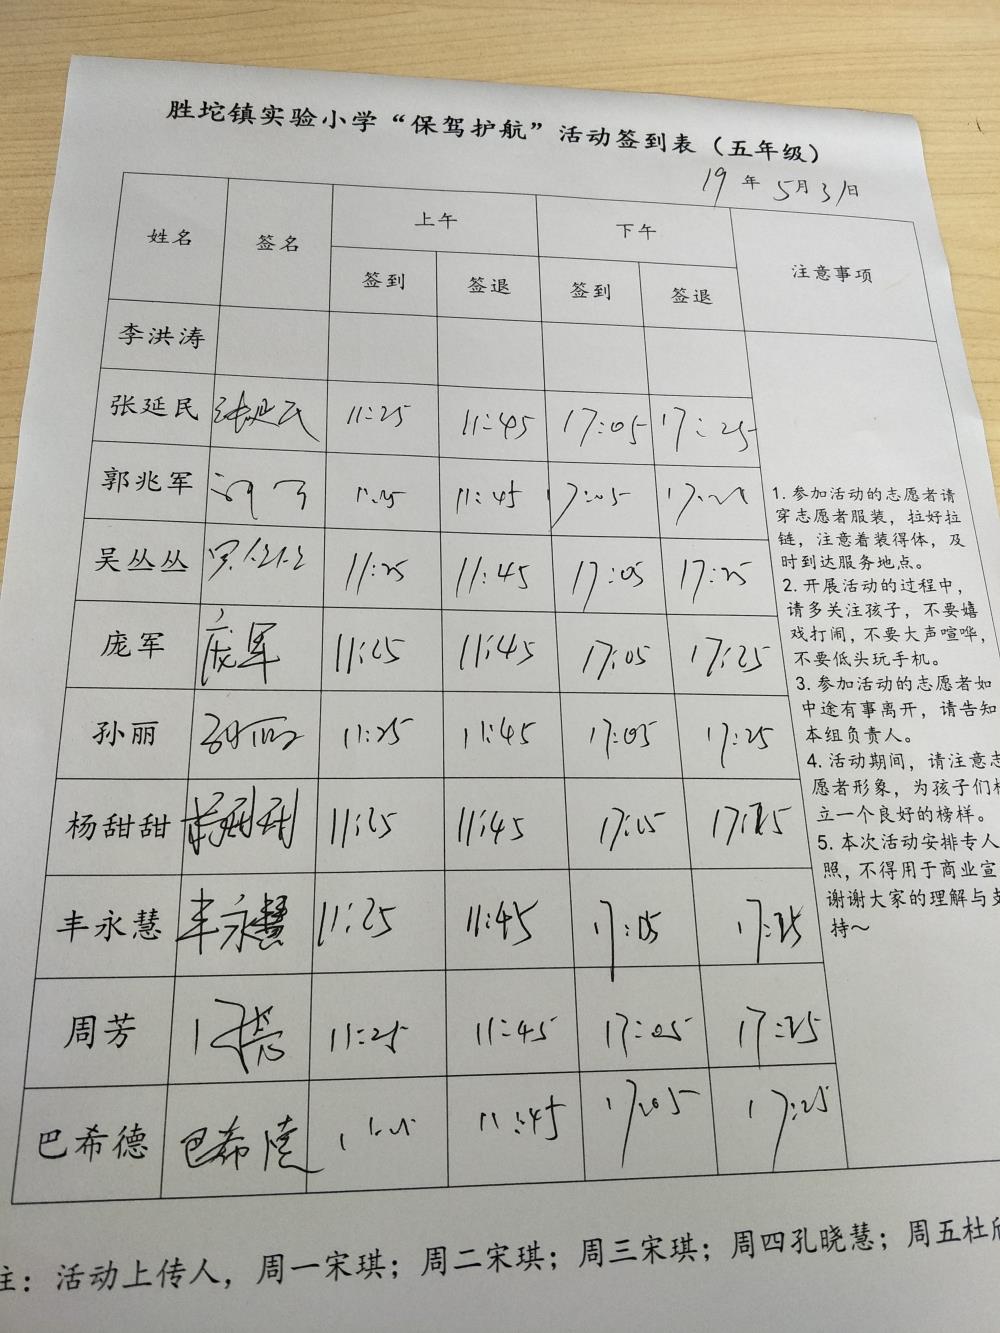 胜坨镇实验小学“保驾护航”活动签到表（五年级）
19年 5月31日
姓名 签名 上午 下午 注意事项
签到 签退 签到 签退
李洪涛
张延民 张延民 11:25 11:45 17:05 17:25
郭兆军 11:45 17:05
吴丛丛 吴丛丛 11:25 11:45 17:05 17:25
庞军 庞军 11:25 11:45 17:05 17:25
孙丽 孙丽 11:25 11:45 17:05 17:25
杨甜甜 杨甜甜 11:25 11:45 17:05 17:25
丰永慧 丰永慧 11:25 11:45 17:05 17:25
周芳 11:25 11:45 17:05 17:25
巴希德 巴希德 11:45 17:05 17:25
1. 参加活动的志愿者请
穿志愿者服装，拉好拉
链，注意着装得体，及
时到达服务地点。
2. 开展活动的过程中，
请多关注孩子，不要嬉
戏打闹，不要大声喧哗，
不要低头玩手机。
3. 参加活动的志愿者如
中途有事离开，请告知
本组负责人。
4. 活动期间，请注意志
愿者形象，为孩子们树
立一个良好的榜样。
5. 本次活动安排专人
照，不得用于商业宣
谢谢大家的理解与支
持～
注：活动上传人，周一宋琪；周二宋琪；周三宋琪；周四孔晓慧；周五杜欣